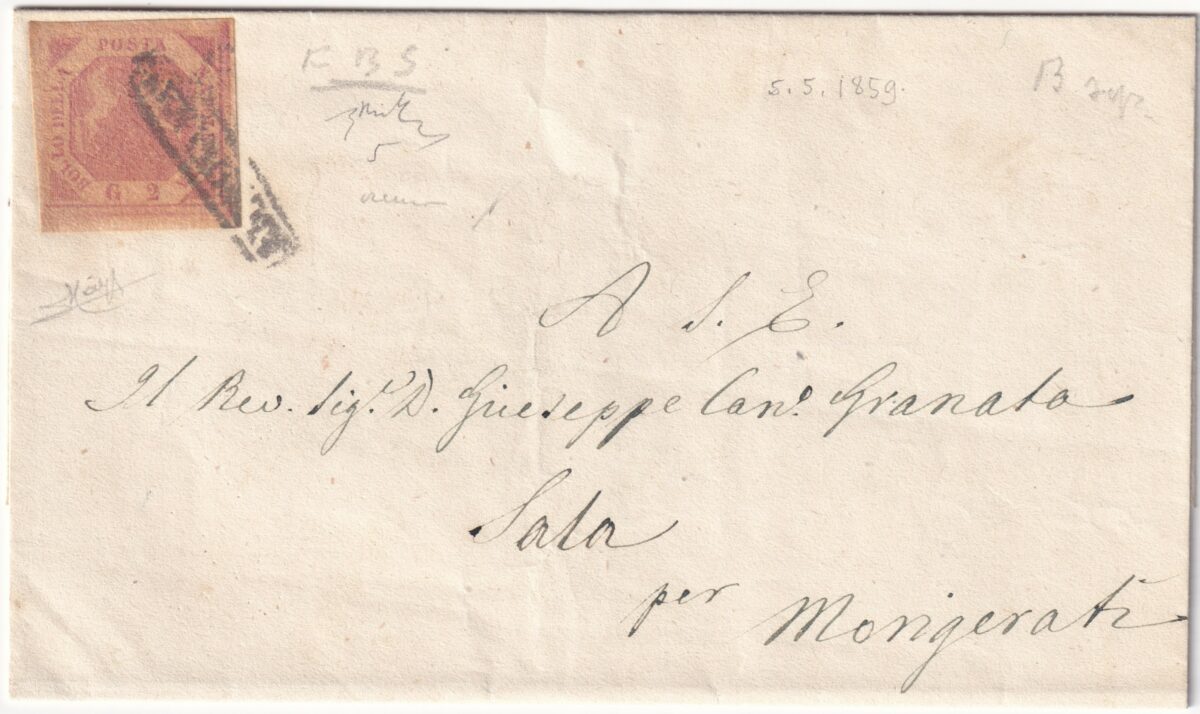 BOLLO DELLA
POSTA
G 2
K B S
5
5.5.1859.
B
A S. E.
Il Rev. Sig.r D. Giuseppe Can.o Granata
Sala
per Morigerati